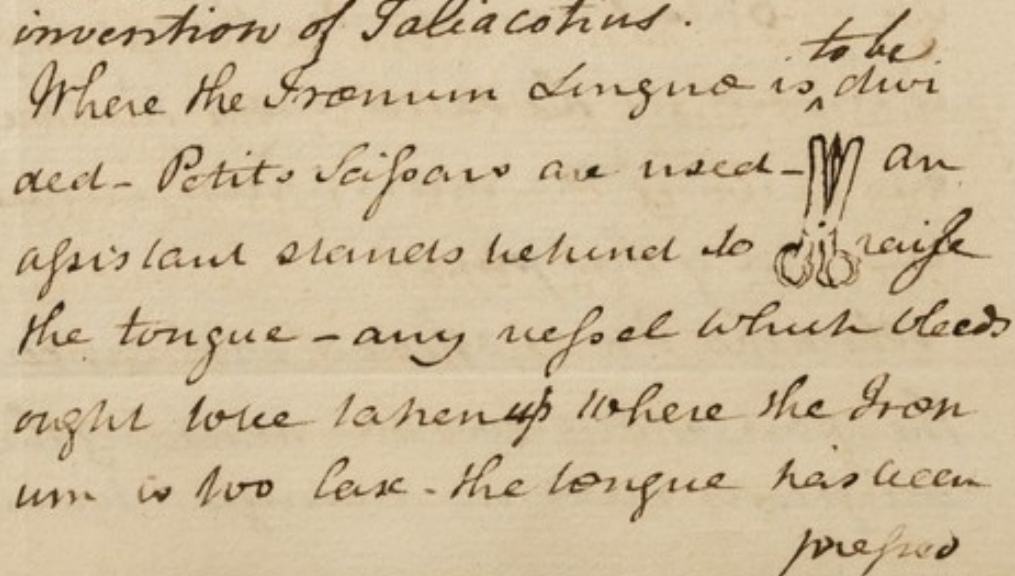 invention of Taliacotius.
to be
Where the Frœnum Linguœ is ‸ divi
ded - Petits Scissars are used - an
assistant stands behind to raise
the tongue - any vessel which bleeds
ought to be taken up Where the Frœn
um is too lax - the tongue has been
pressed